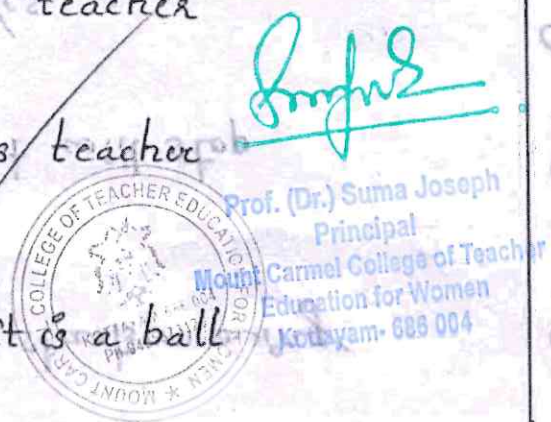 teacher
s teacher
t is a ball
Prof. (Dr.) Suma Joseph
Principal
Mount Carmel College of Teacher
Education for Women
Kottayam- 686 004
COLLEGE OF TEACHER EDUCATION FOR WOMEN * MOUNT CAR